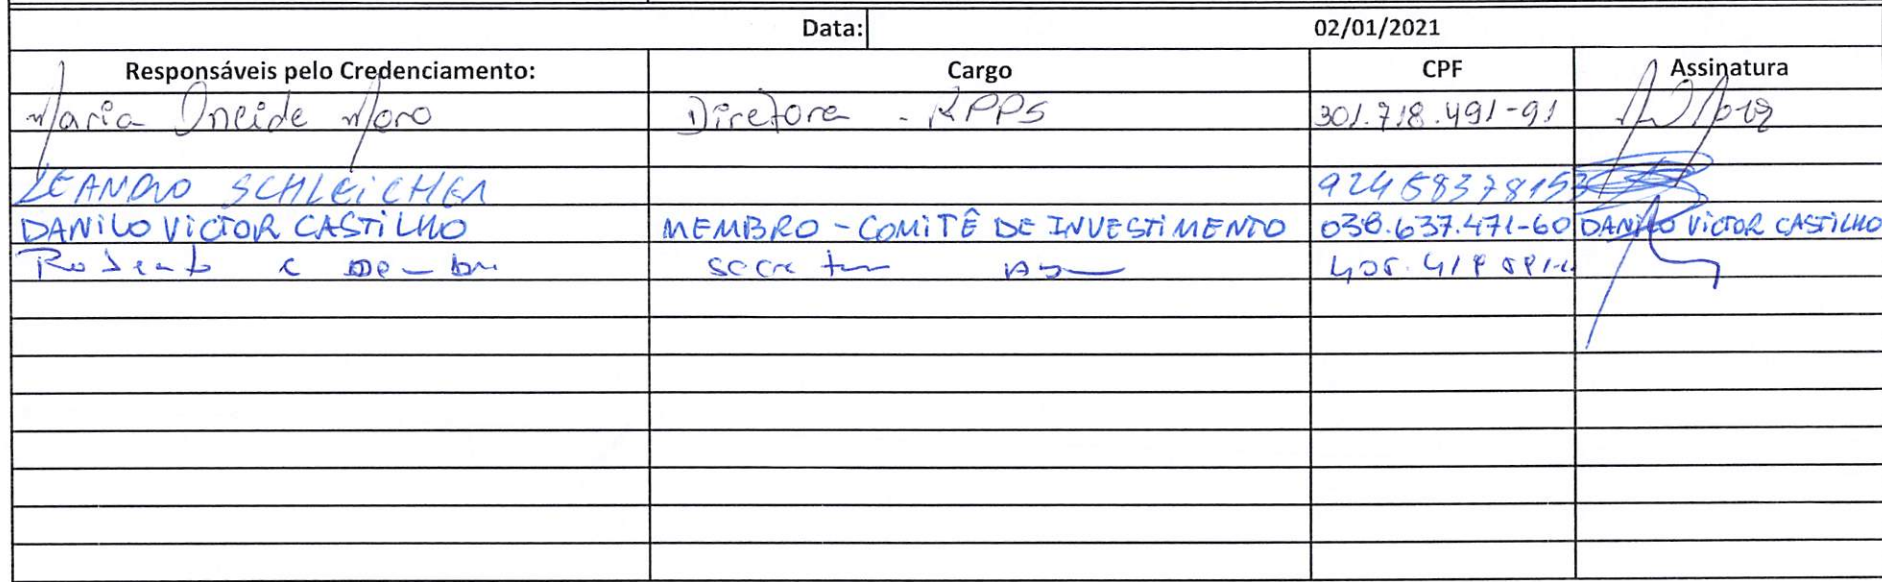 Data: 02/01/2021
Responsáveis pelo Credenciamento: Cargo CPF Assinatura
Maria Oneide Moro Diretora - RPPS 301.718.491-91
LEANDRO SCHLEICHER 92458378153
DANILO VICTOR CASTILHO MEMBRO - COMITÊ DE INVESTIMENTO 038.637.471-60 DANILO VICTOR CASTILHO